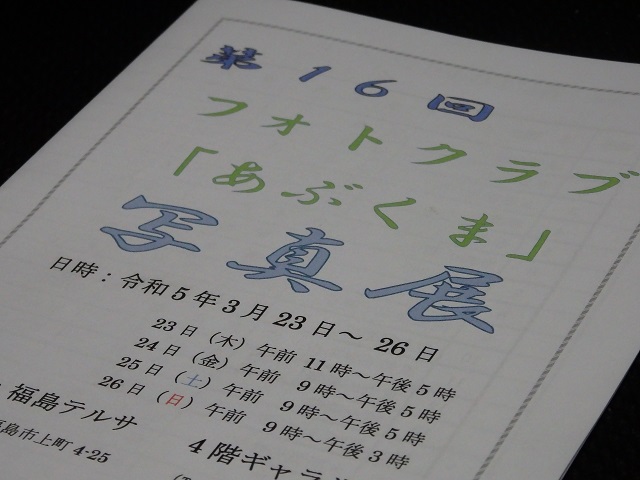 第16回
フォトクラブ
「あぶくま」
写真展
日時：令和5年3月23日～26日
23日（木）午前 11時～午後5時
24日（金）午前 9時～午後5時
25日（土）午前 9時～午後5時
26日（日）午前 9時～午後3時
福島テルサ 4階ギャラ
島市上町 4-25